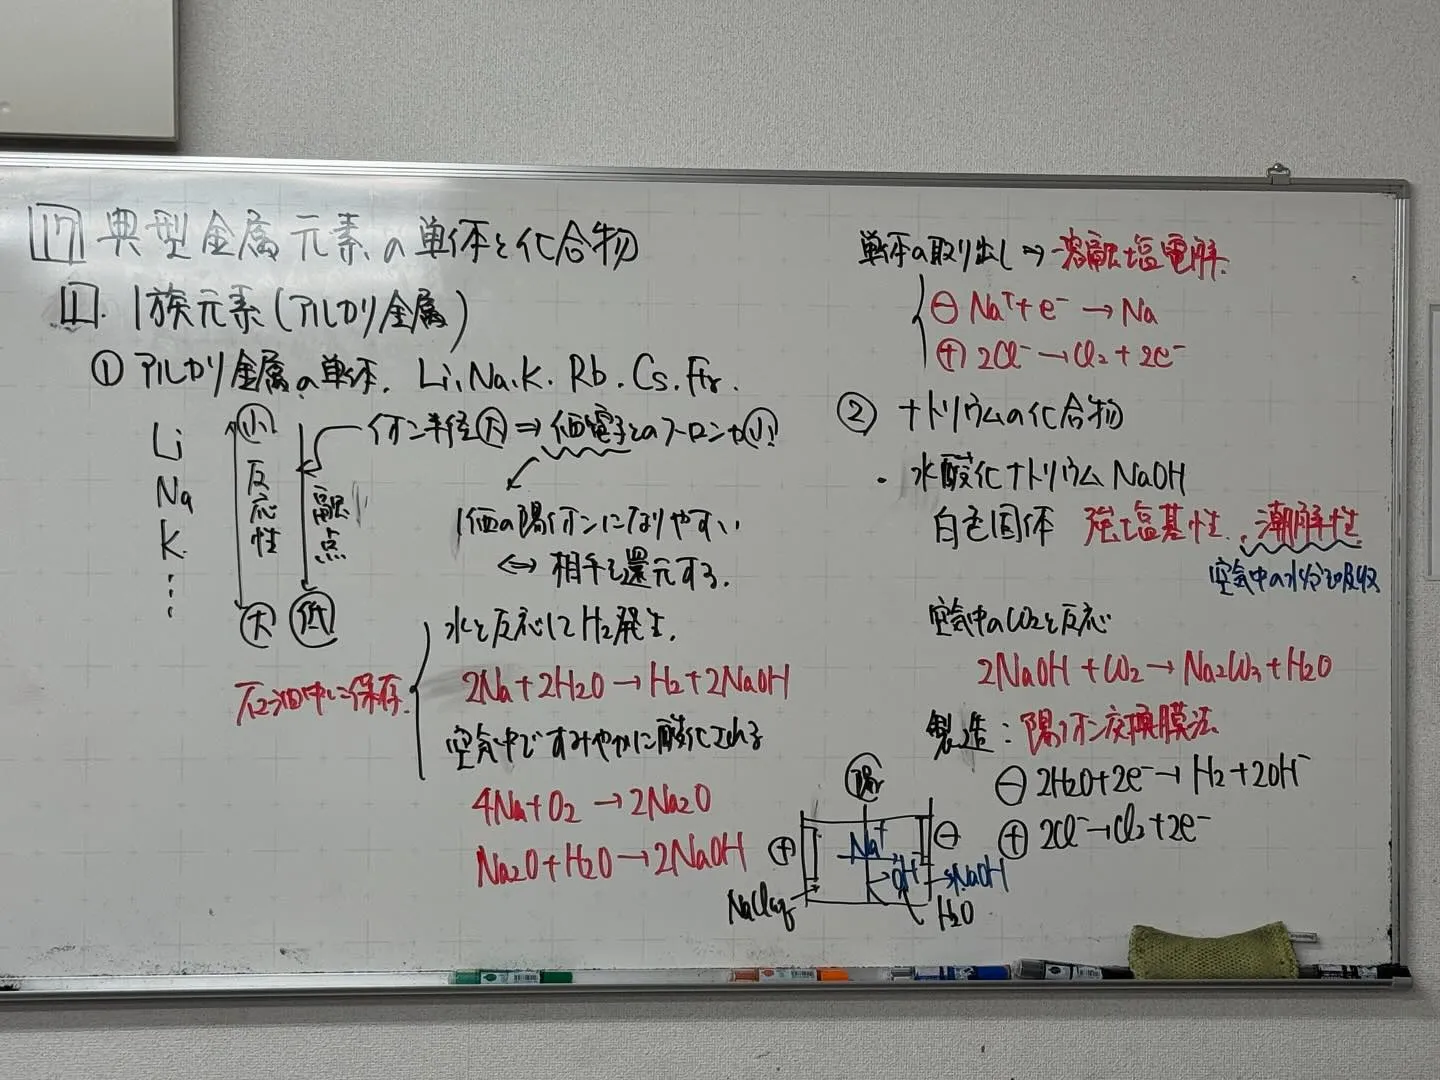 17 典型金属元素の単体と化合物
1. 1族元素(アルカリ金属)
① アルカリ金属の単体. Li.Na.K.Rb.Cs.Fr.
Li
Na
K
⋮
小
反応性
大
融点
低
イオン半径大⇒価電子とのクーロン力小
1価の陽イオンになりやすい
⇔ 相手を還元する.
石油中に保存.
水と反応してH2発生.
2Na+2H2O→H2+2NaOH
空気中ですみやかに酸化される
4Na+O2→2Na2O
Na2O+H2O→2NaOH
単体の取り出し⇒溶融塩電解.
⊖ Na⁺+e⁻→Na
⊕ 2Cl⁻→Cl2+2e⁻
② ナトリウムの化合物
・水酸化ナトリウムNaOH
白色固体 強塩基性.潮解性
空気中の水分を吸収
空気中のCO2と反応
2NaOH+CO2→Na2CO3+H2O
製造:陽イオン交換膜法
⊖ 2H2O+2e⁻→H2+2OH⁻
⊕ 2Cl⁻→Cl2+2e⁻
陽
⊕
Na⁺
⊖
OH⁻
→NaOH
NaClaq
H2O